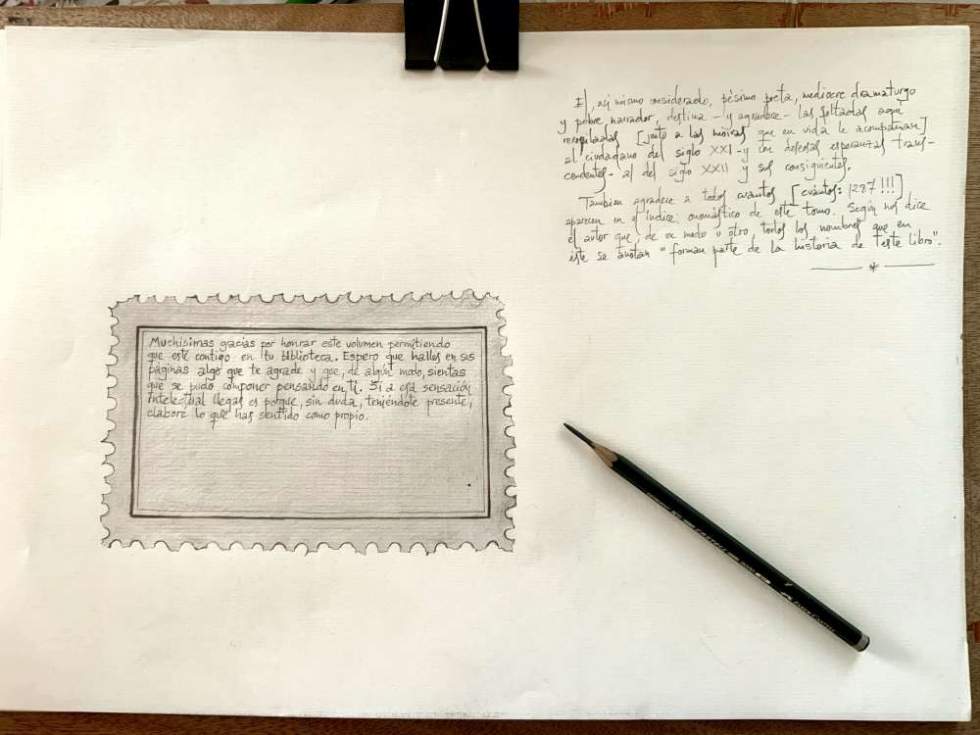 El, así mismo considerado, pésimo poeta, mediocre dramaturgo
y pobre narrador, destina - y agradece - las faltadas aquí
recopiladas [junto a las que en vida le acompañaran]
al ciudadano del siglo XXI - y con esperanzas trans-
cendentes - al del siglo XXII y sus consiguientes.
También agradece a todos cuantos [cuántos: 1287!!!]
aparecen en el índice onomástico de este tomo. Según nos dice
el autor que, de un modo u otro, todos los nombres que en
éste se anotan "forman parte de la historia de este libro".
*
Muchísimas gracias por honrar este volumen permitiendo
que esté contigo en tu biblioteca. Espero que halles en sus
páginas algo que te agrade y que, de algún modo, sientas
que se pudo componer pensando en ti. Si a esa sensación
intelectual llegas es porque, sin duda, teniéndote presente,
elaboré lo que has sentido como propio.